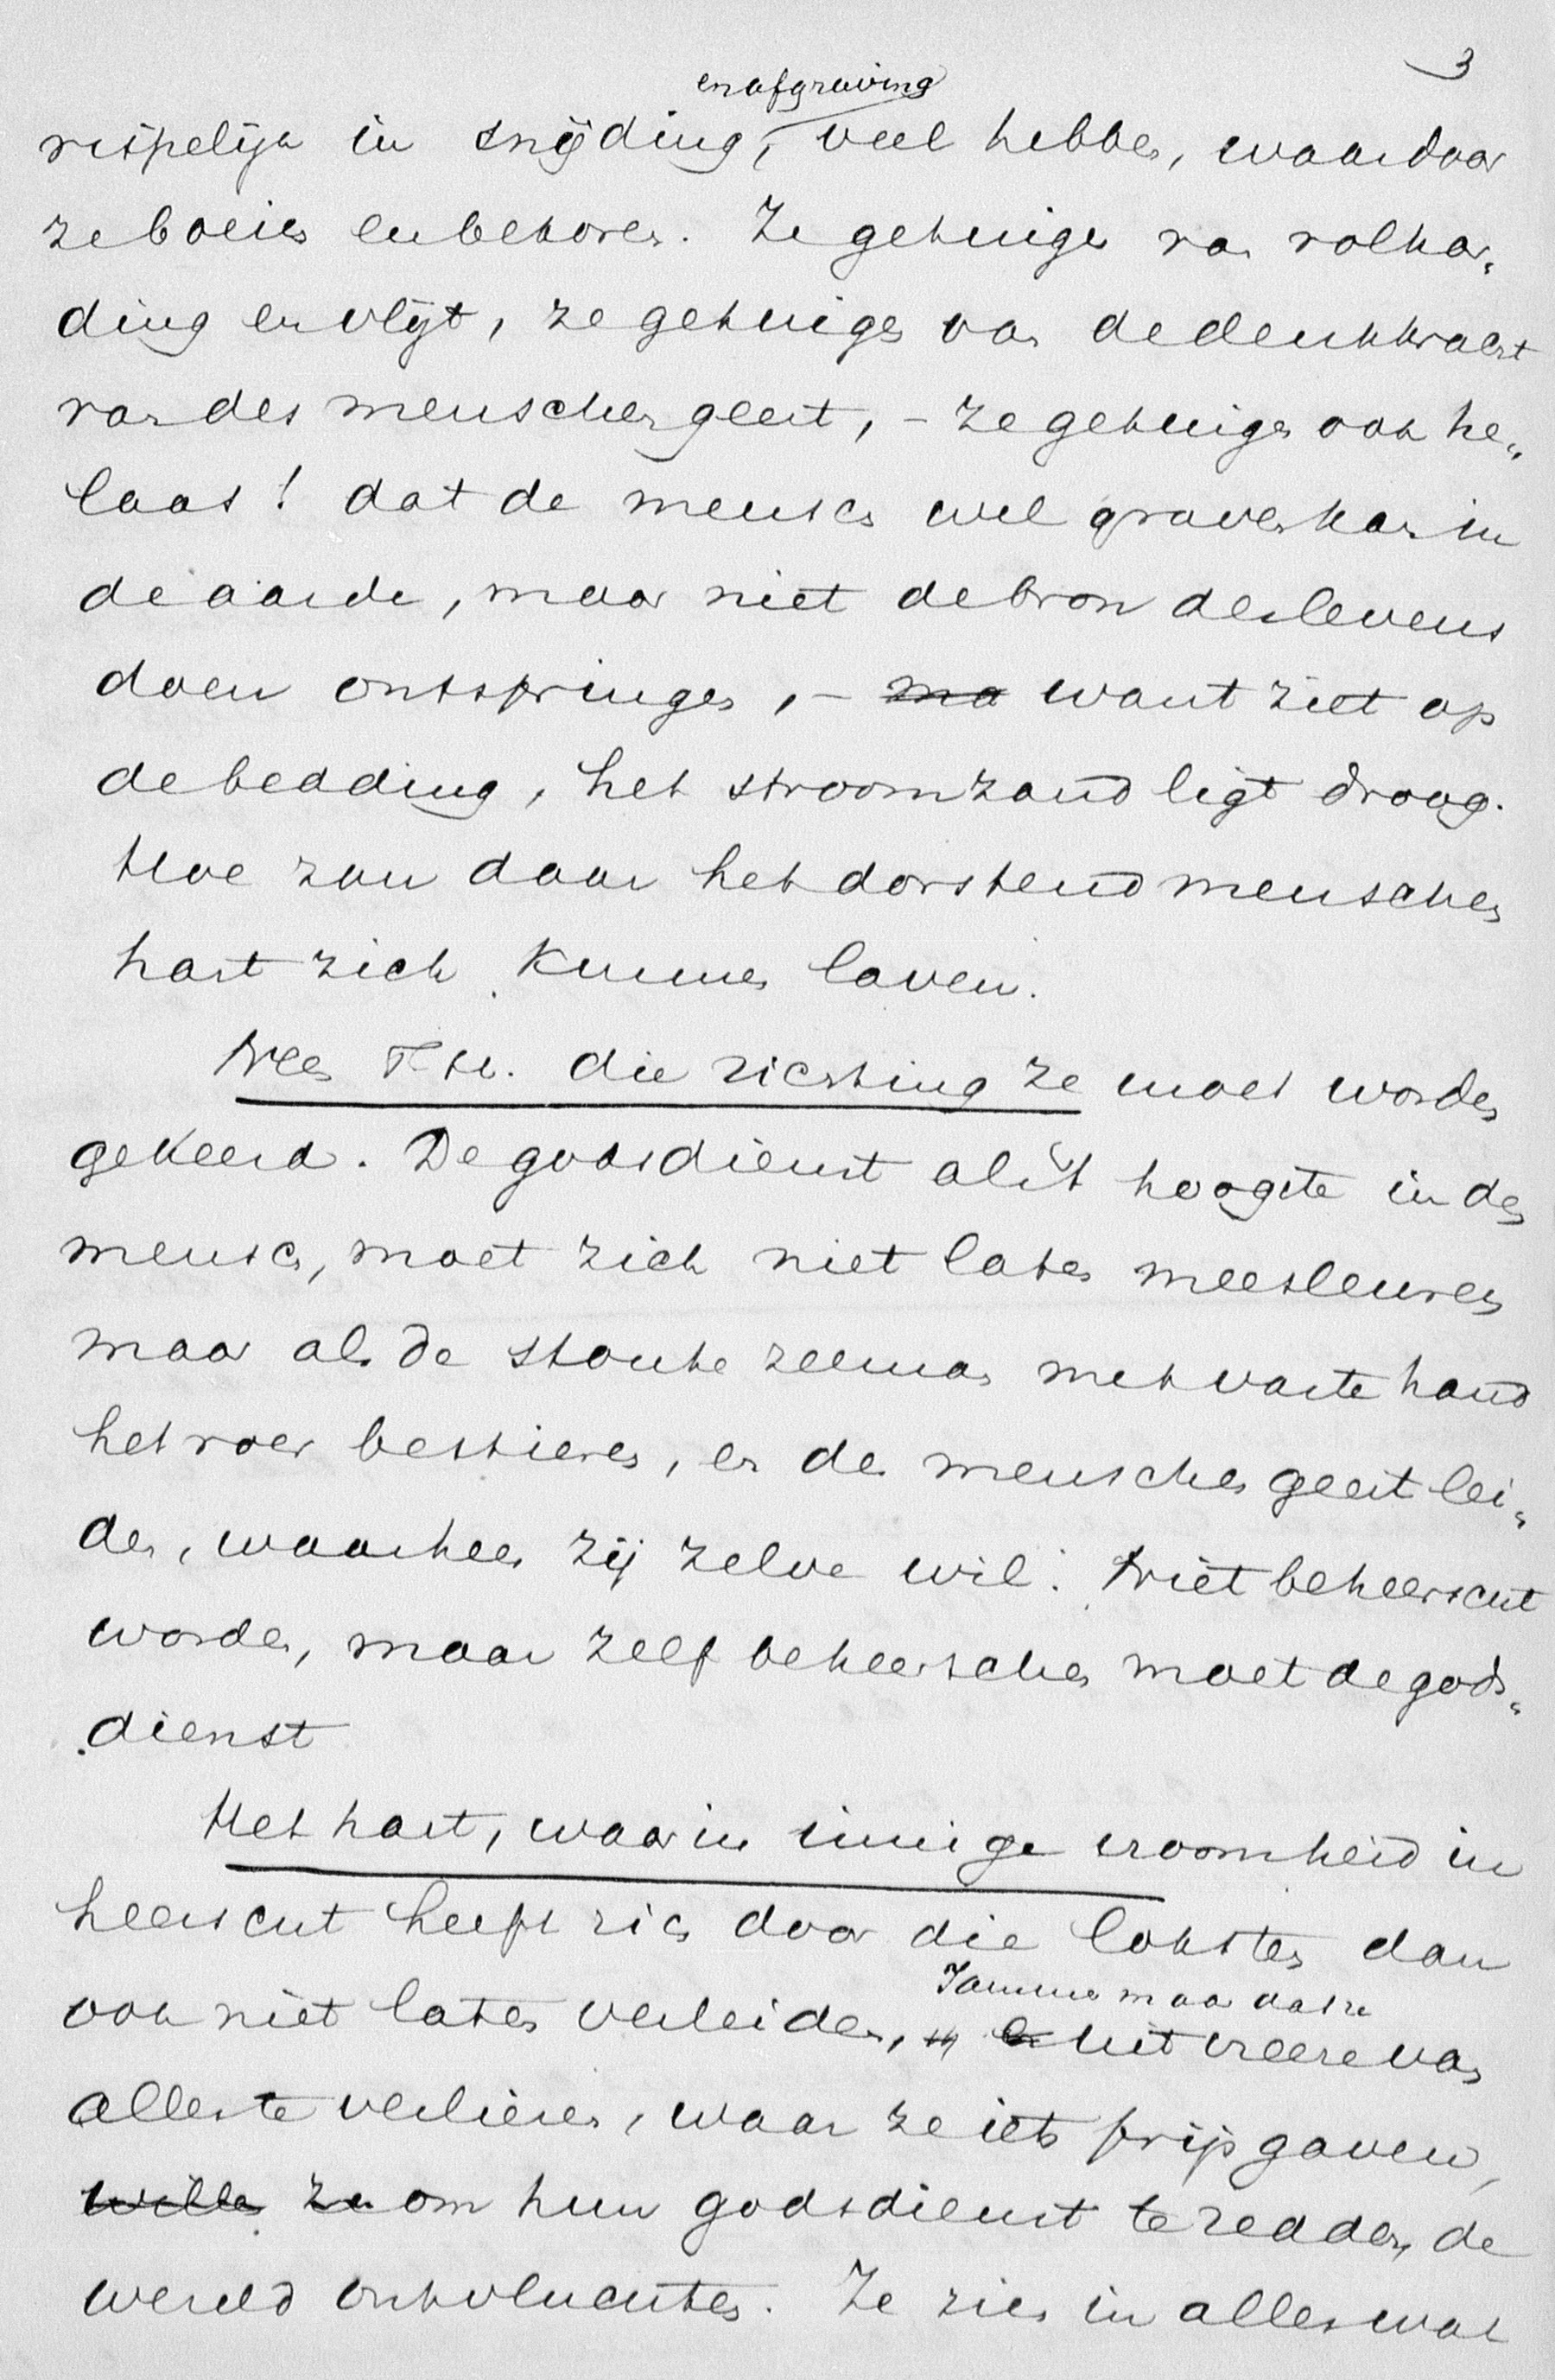 3
en afgraving
rispelijk in snijding, veel hebben, waardoor
ze boeien en bekoren. Ze getuigen van volhar„
ding en vlijt, ze getuigen van de denkkracht
van des menschen geest, – ze getuigen ook he„
laas! dat de mensch wel graven kan in
de aarde, maar niet de bron des levens
doen ontspringen, – ma want ziet op
de bedding, het stroomzand ligt droog.
Hoe zou daar het dorstend menschen
hart zich kunnen laven.
Neen T.H. die richting ze moet worden
gekeerd. De godsdienst als 't hoogste in den
mensch, moet zich niet laten meesleuren
maar als de stoute zeeman met vaste hand
het roer bestieren, en den menschen geest lei„
den, waarheen zij zelve wil. Niet beheerscht
worden, maar zelf beheerschen moet de gods„
dienst
Het hart, waarin innige vroomheid in
heerscht heeft zich door die lokstem dan
Jammer maar dat ze
ook niet laten verleiden, uit vreeze van
alles te verliezen, waar ze iets prijs gaven,
willen ze om hun godsdienst te redden, de
wereld ontvluchten. Ze zien in alles wat